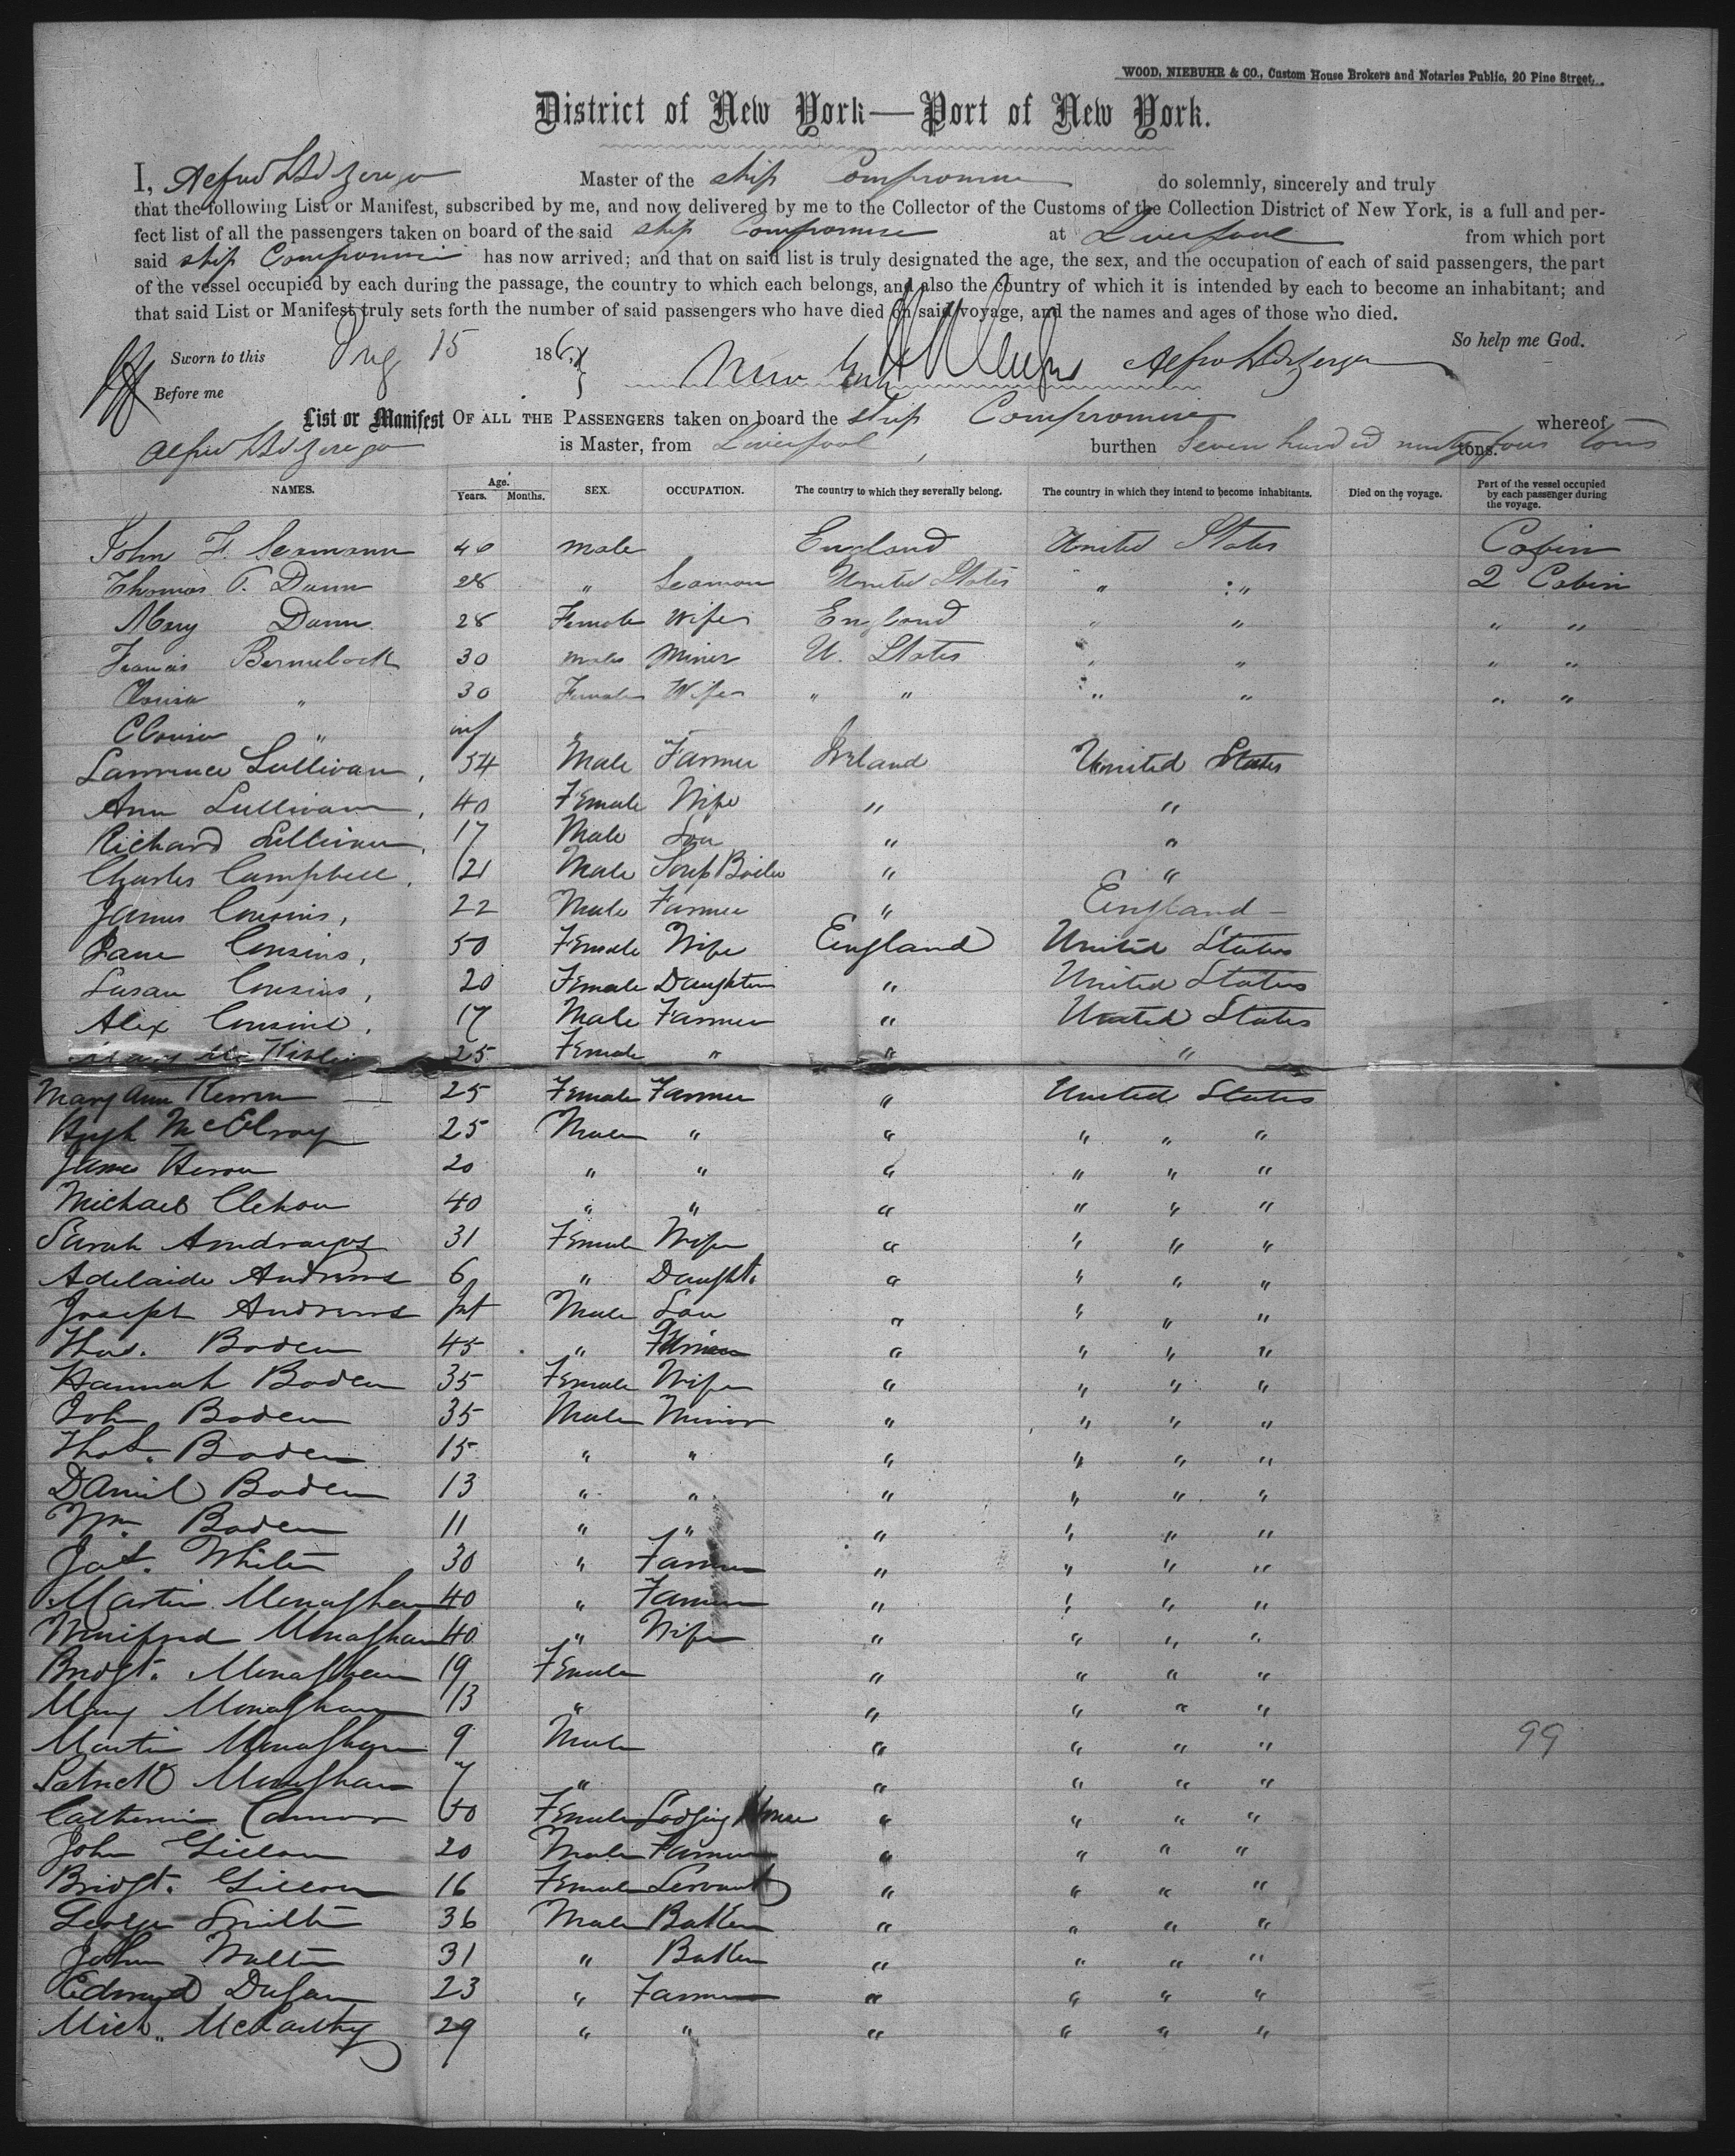 WOOD, NIEBUHR & CO., Custom House Brokers and Notaries Public, 20 Pine Street.
District of New York—Port of New York.
I, Alfred Master of the ship Compromise do solemnly, sincerely and truly
that the following List or Manifest, subscribed by me, and now delivered by me to the Collector of the Customs of the Collection District of New York, is a full and per-
fect list of all the passengers taken on board of the said ship Compromise at Liverpool from which port
said ship Compromise has now arrived; and that on said list is truly designated the age, the sex, and the occupation of each of said passengers, the part
of the vessel occupied by each during the passage, the country to which each belongs, and also the country of which it is intended by each to become an inhabitant; and
that said List or Manifest truly sets forth the number of said passengers who have died on said voyage, and the names and ages of those who died.
So help me God.
Sworn to this Aug 15 186
Before me
List or Manifest OF ALL THE PASSENGERS taken on board the ship Compromise whereof
Alfred is Master, from Liverpool, burthen Seven hundred ninety four tons tons.
NAMES. Age. Years. Months. SEX. OCCUPATION. The country to which they severally belong. The country in which they intend to become inhabitants. Died on the voyage. Part of the vessel occupied by each passenger during the voyage.
John F. 40 male England United States Cabin
Thomas Dunn 28 " Seaman United States " " 2 Cabin
Mary Dunn 28 Female Wife England " " " "
Francis 30 male Miner U. States " " " "
Louisa " 30 Female Wife " " " " " "
" inf
Lawrence Sullivan, 54 Male Farmer Ireland United States
Ann Sullivan, 40 Female Wife " "
Richard Sullivan, 17 Male Son " "
Charles Campbell, 21 Male Soap Boiler " "
James Cousins, 22 Male Farmer " England
Jane Cousins, 50 Female Wife England United States
Susan Cousins, 20 Female Daughter " United States
Alex Cousins, 17 Male Farmer " United States
Mary 25 Female " " "
Mary Ann 25 Female Farmer " United States
Hugh McElroy 25 Male " " " " "
James Heron 20 " " " " " "
Michael 40 " " " " " "
Sarah 31 Female Wife " " " "
Adelaide Andrews 6 " Daught. " " " "
Joseph Andrews Inf Male Son " " " "
Thos. Boden 45 " Farmer " " " "
Hannah Boden 35 Female Wife " " " "
John Boden 35 Male Minor " " " "
Thos. Boden 15 " " " " " "
Daniel Boden 13 " " " " " "
Wm. Boden 11 " " " " " "
Jas. White 30 " Farmer " " " "
Martin Monaghan 40 " Farmer " " " "
Winifred Monaghan 40 " Wife " " " "
Bridgt. Monaghan 19 Female " " " "
Mary Monaghan 13 " " " " "
Martin Monaghan 9 Male " " " " 99
Patrick Monaghan 7 " " " " "
Catherine Connor 50 Female Lodging House " " " "
John Gillon 20 Male Farmer " " " "
Bridgt. Gillon 16 Female Servant " " " "
George Smith 36 Male Baker " " " "
John Walter 31 " Baker " " " "
Edmund Dugan 23 " Farmer " " " "
Mich. McCarthy 29 " " " " " "